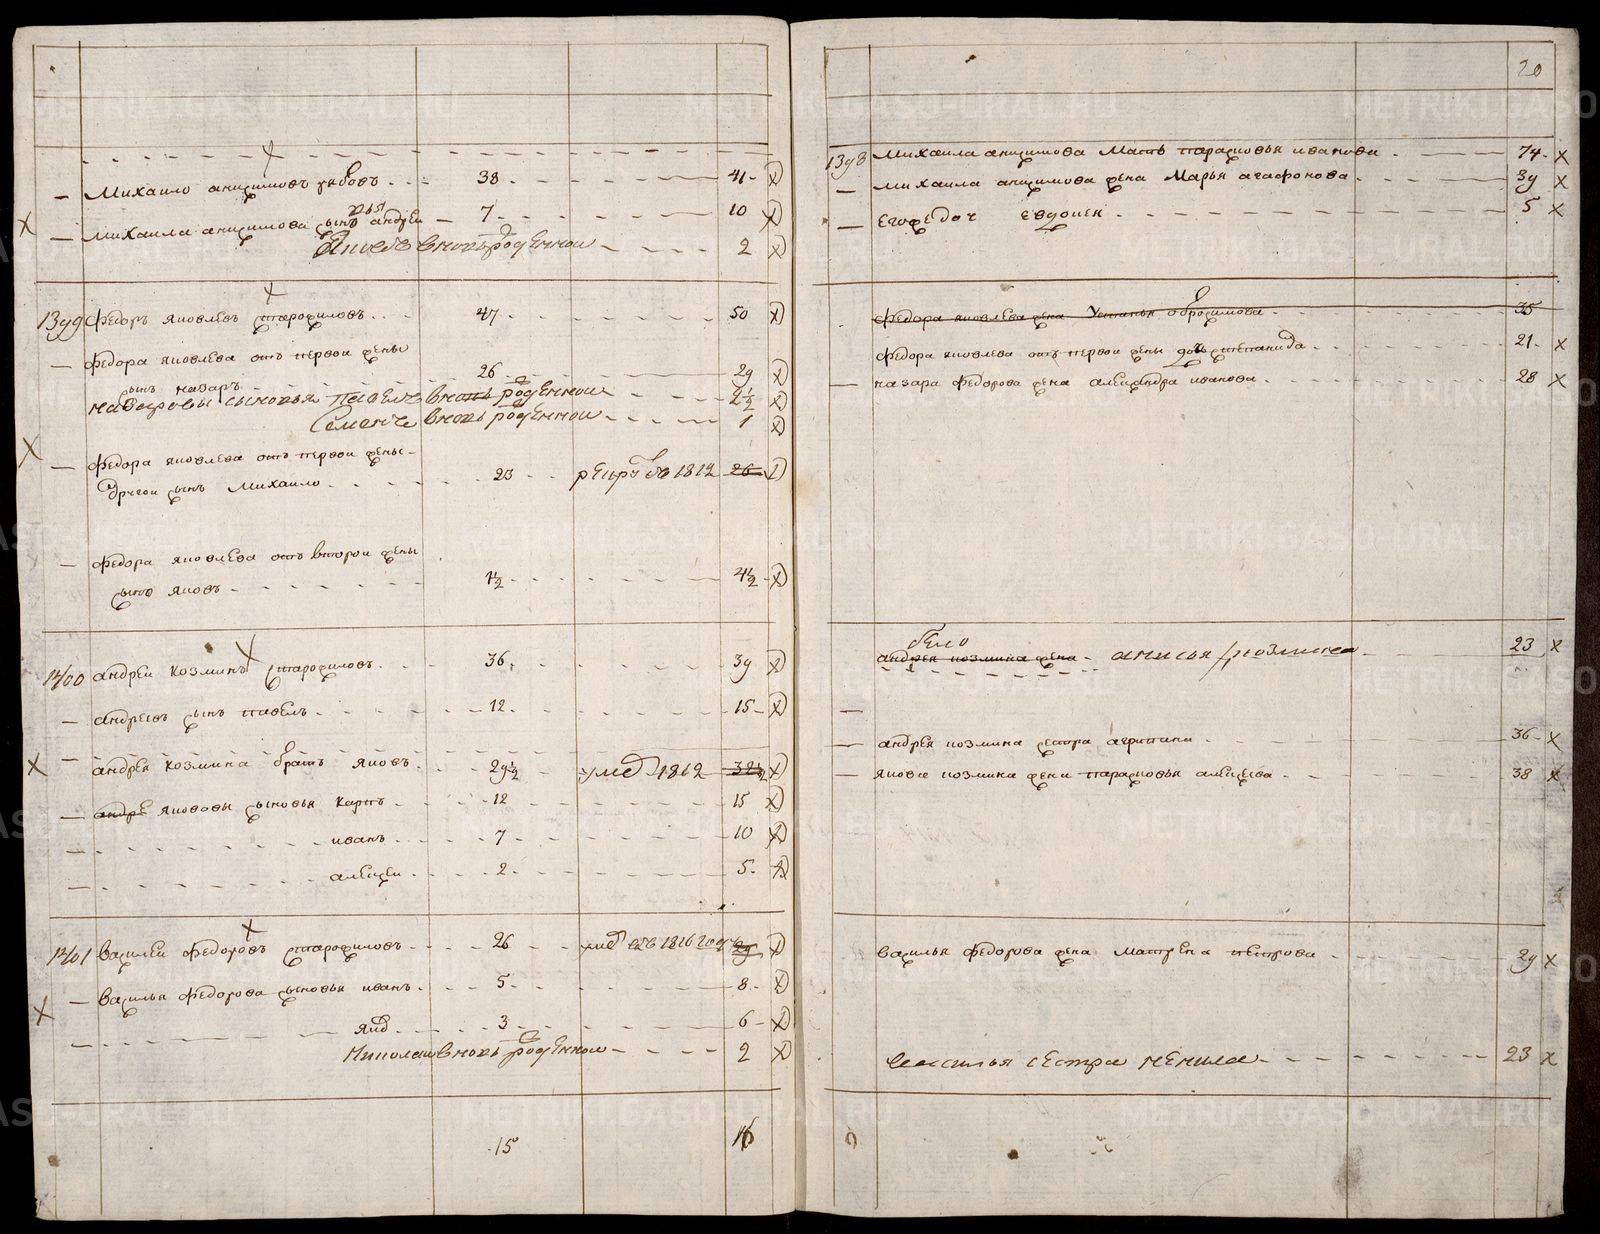 Михаило анисимовъ зубовъ 38 41
Михаила анисимова сынъ андреи 7 10
вновь рожденнои 2
1399 Федоръ яковлевъ старофиловъ 47 50
Федора яковлева отъ первои жены
сынъ назаръ 26 29
назаровы сыновья Павелъ вновь рожденнои 2½
Семенъ вновь рожденнои 1
Федора яковлева отъ первои жены
другои сынъ Михаило 23 рекрутъ въ 1812 26
Федора яковлева отъ второи жены
сынъ яковъ 1½ 4½
1400 андреи козминъ старофиловъ 36 39
андреевъ сынъ павелъ 12 15
андрея козмина братъ яковъ 29½ умеръ 1812 32½
андре яковавы сыновья карпъ 12 15
иванъ 7 10
алексеи 2 5
1401 Василеи федоровъ старофиловъ 26 умеръ въ 1816 году 29
Василья федорова сыновья иванъ 5 8
3 6
Николаи вновь рожденнои 2
15 16
20
1398 Михаила анисимова Мать парасковья иванова 74
Михаила анисимова жена Марья агафонова 39
его же дочь евдокея 5
Федора яковлева жена Устинья 35
Федора яковлева отъ первои жены дочь степанида 21
назара федорова жена александра иванова 28
андрея козмина жена анисья козмина 23
андрея козмина сестра агрипина 36
якова козмина жена парасковья алексеева 38
Василья федорова жена матрена петрова 29
Василья сестра ненила 23
METRIKI.GASO-URAL.RU